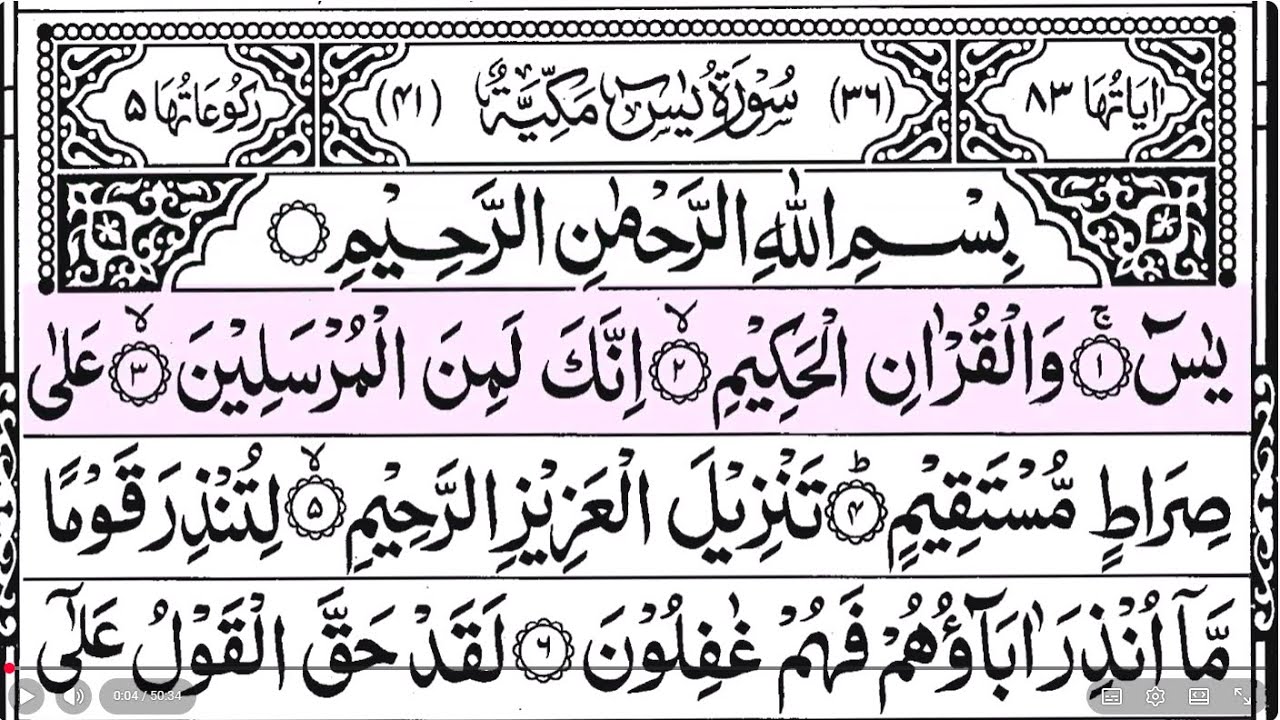 اٰيَاتُهَا ٨٣ (٣٦) سُوْرَةُ يٰسٓ مَكِّيَّةٌ (٤١) رُكُوْعَاتُهَا ٥
بِسْمِ اللّٰهِ الرَّحْمٰنِ الرَّحِيْمِ ۝
يٰسٓ ۚ﴿۱﴾ وَالْقُرْاٰنِ الْحَكِيْمِ ۙ﴿۲﴾ اِنَّكَ لَمِنَ الْمُرْسَلِيْنَ ۙ﴿۳﴾ عَلٰى
صِرَاطٍ مُّسْتَقِيْمٍ ؕ﴿۴﴾ تَنْزِيْلَ الْعَزِيْزِ الرَّحِيْمِ ۙ﴿۵﴾ لِتُنْذِرَ قَوْمًا
مَّاۤ اُنْذِرَ اٰبَآؤُهُمْ فَهُمْ غٰفِلُوْنَ ﴿۶﴾ لَقَدْ حَقَّ الْقَوْلُ عَلٰٓى
0:04 / 50:34